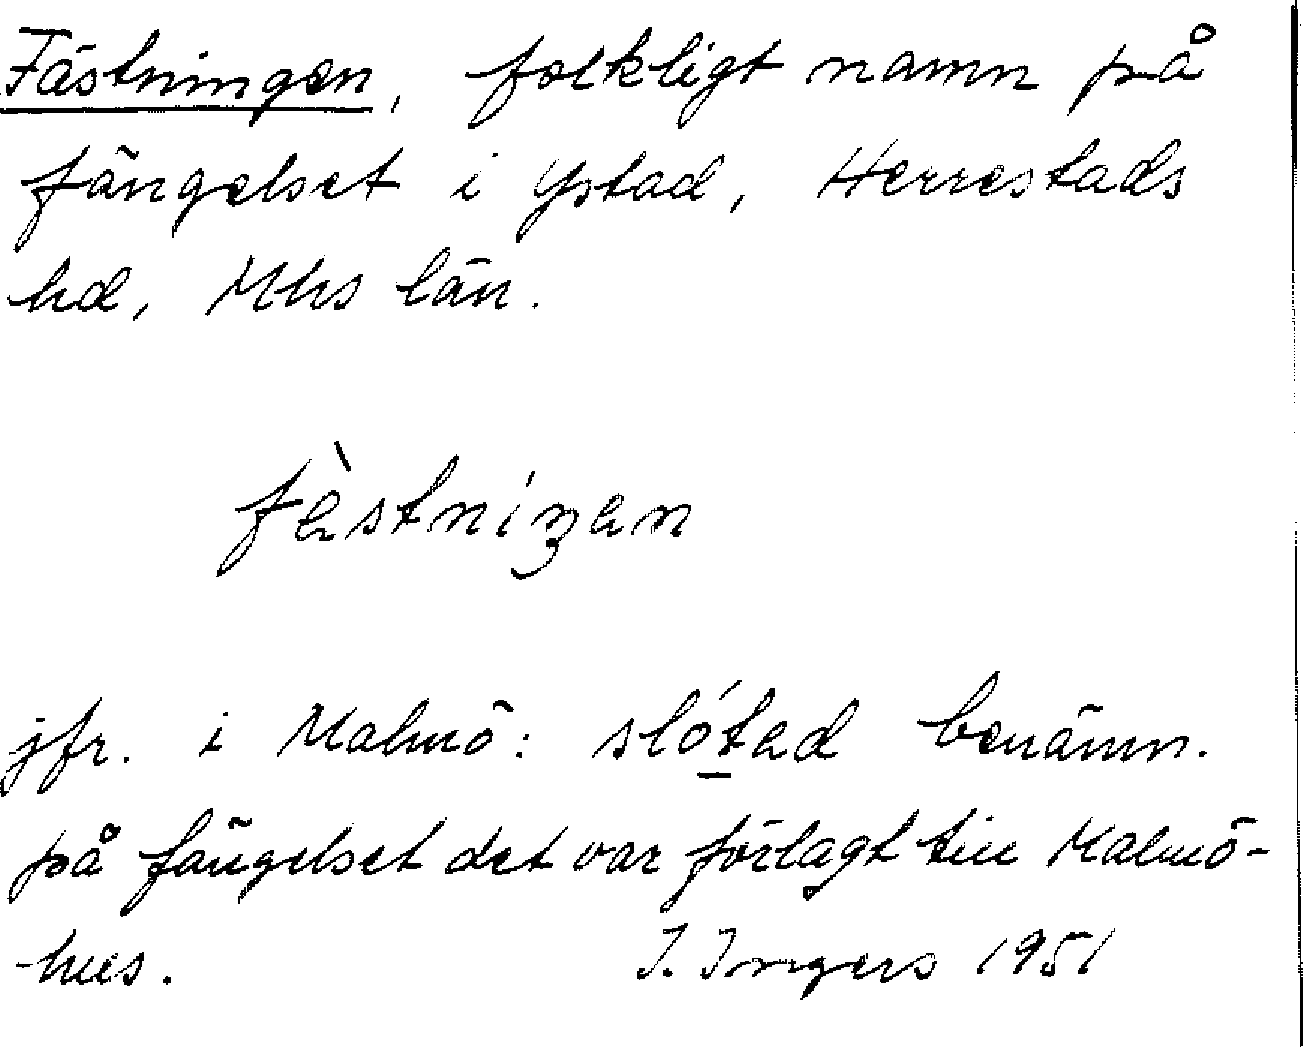 Fästningen, folkligt namn på
fängelset i Ystad, Herrestads
hd, Mhs län.
fὲstniŋen
jfr. i Malmö: slótad benämn.
på fängelset det var förlagt till Malmö-
hus. I. Ingers 1951